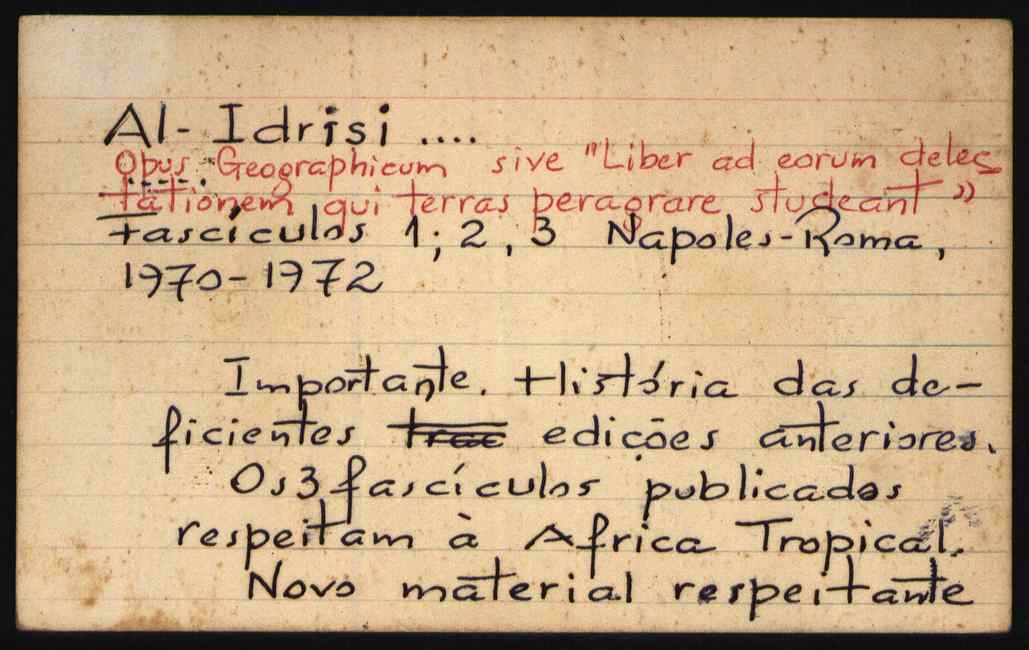 Al-Idrisi ....
Opus Geographicum sive "Liber ad eorum delec
tationem qui terras peragrare studeant"
Fascículos 1; 2, 3 Napoles-Roma,
1970-1972
Importante. História das de-
ficientes trac edições anteriores.
Os 3 fascículos publicados
respeitam à Africa Tropical.
Novo material respeitante